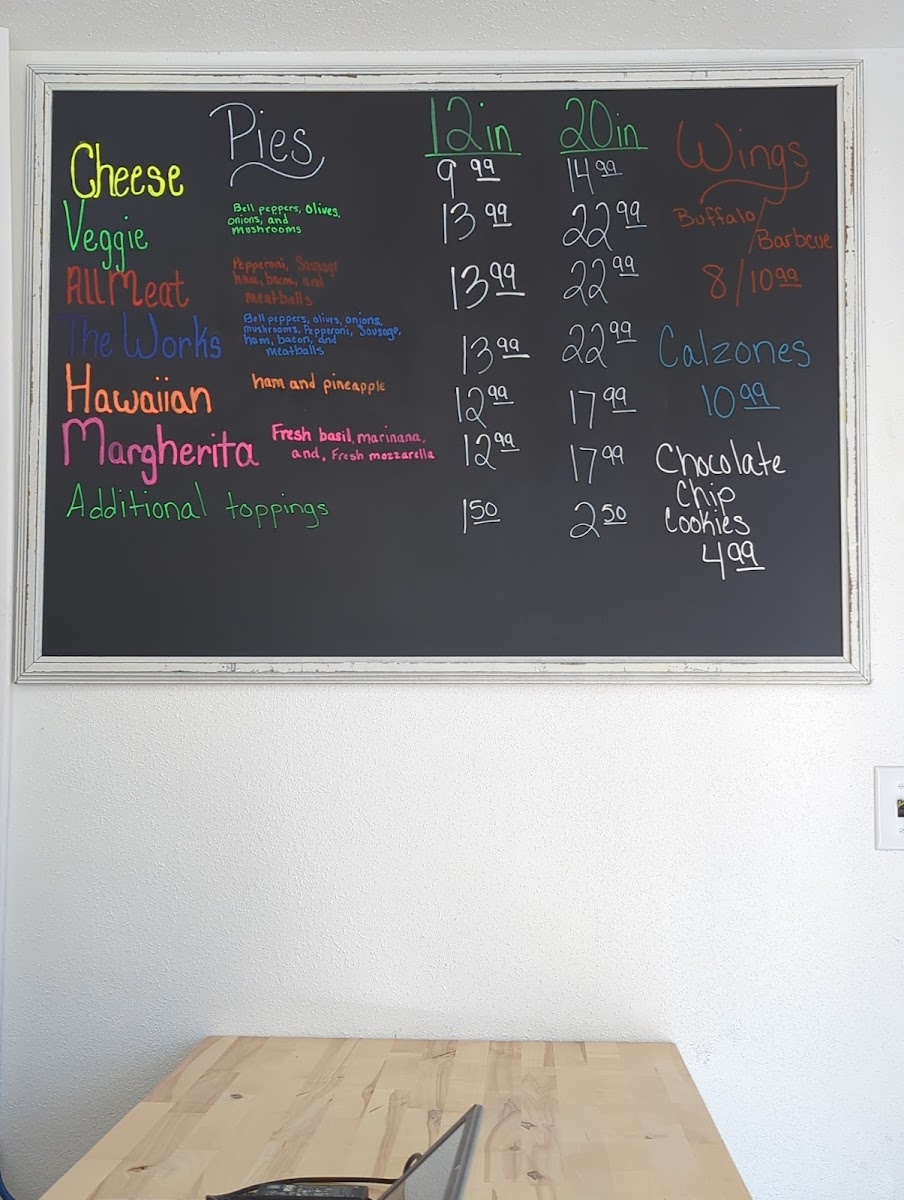 Pies 12in 20in
Cheese 9 99 14 99
Veggie Bell peppers, olives, onions, and mushrooms 13 99 22 99
All Meat Pepperoni, Sausage ham, bacon, and meatballs 13 99 22 99
The Works Bell peppers, olives, onions, mushrooms, Pepperoni, Sausage, ham, bacon, and meatballs 13 99 22 99
Hawaiian ham and pineapple 12 99 17 99
Margherita Fresh basil, marinana, and, Fresh mozzarella 12 99 17 99
Additional toppings 1 50 2 50
Wings
Buffalo/
/Barbeue
8/10 99
Calzones
10 99
Chocolate
Chip
Cookies
4 99